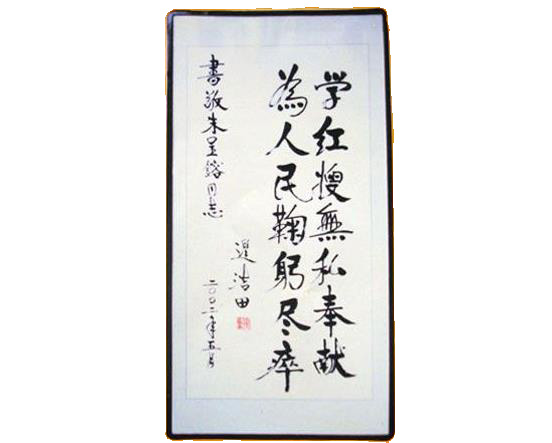 学红嫂無私奉献
為人民鞠躬尽瘁
書敬朱呈鎔同志
遲浩田
二〇〇二年五月